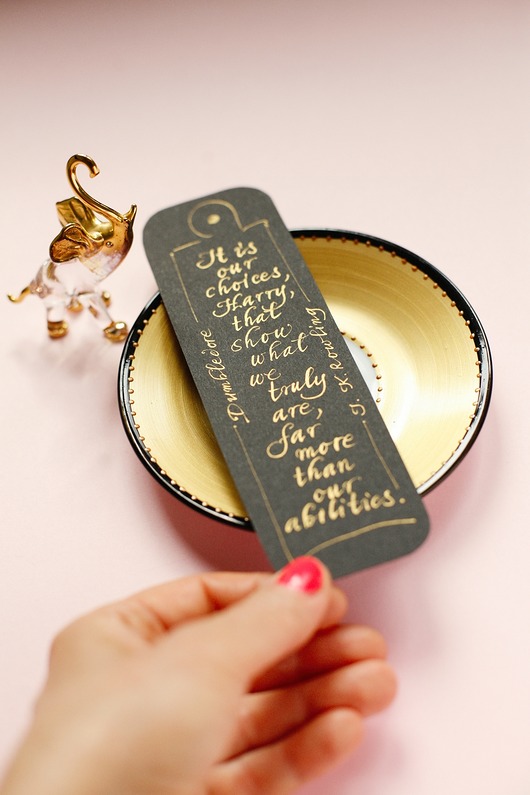 It is
our
choices,
Harry,
that
show
what
we
truly
are,
far
more
than
our
abilities.
Dumbledore
J. K. Rowling